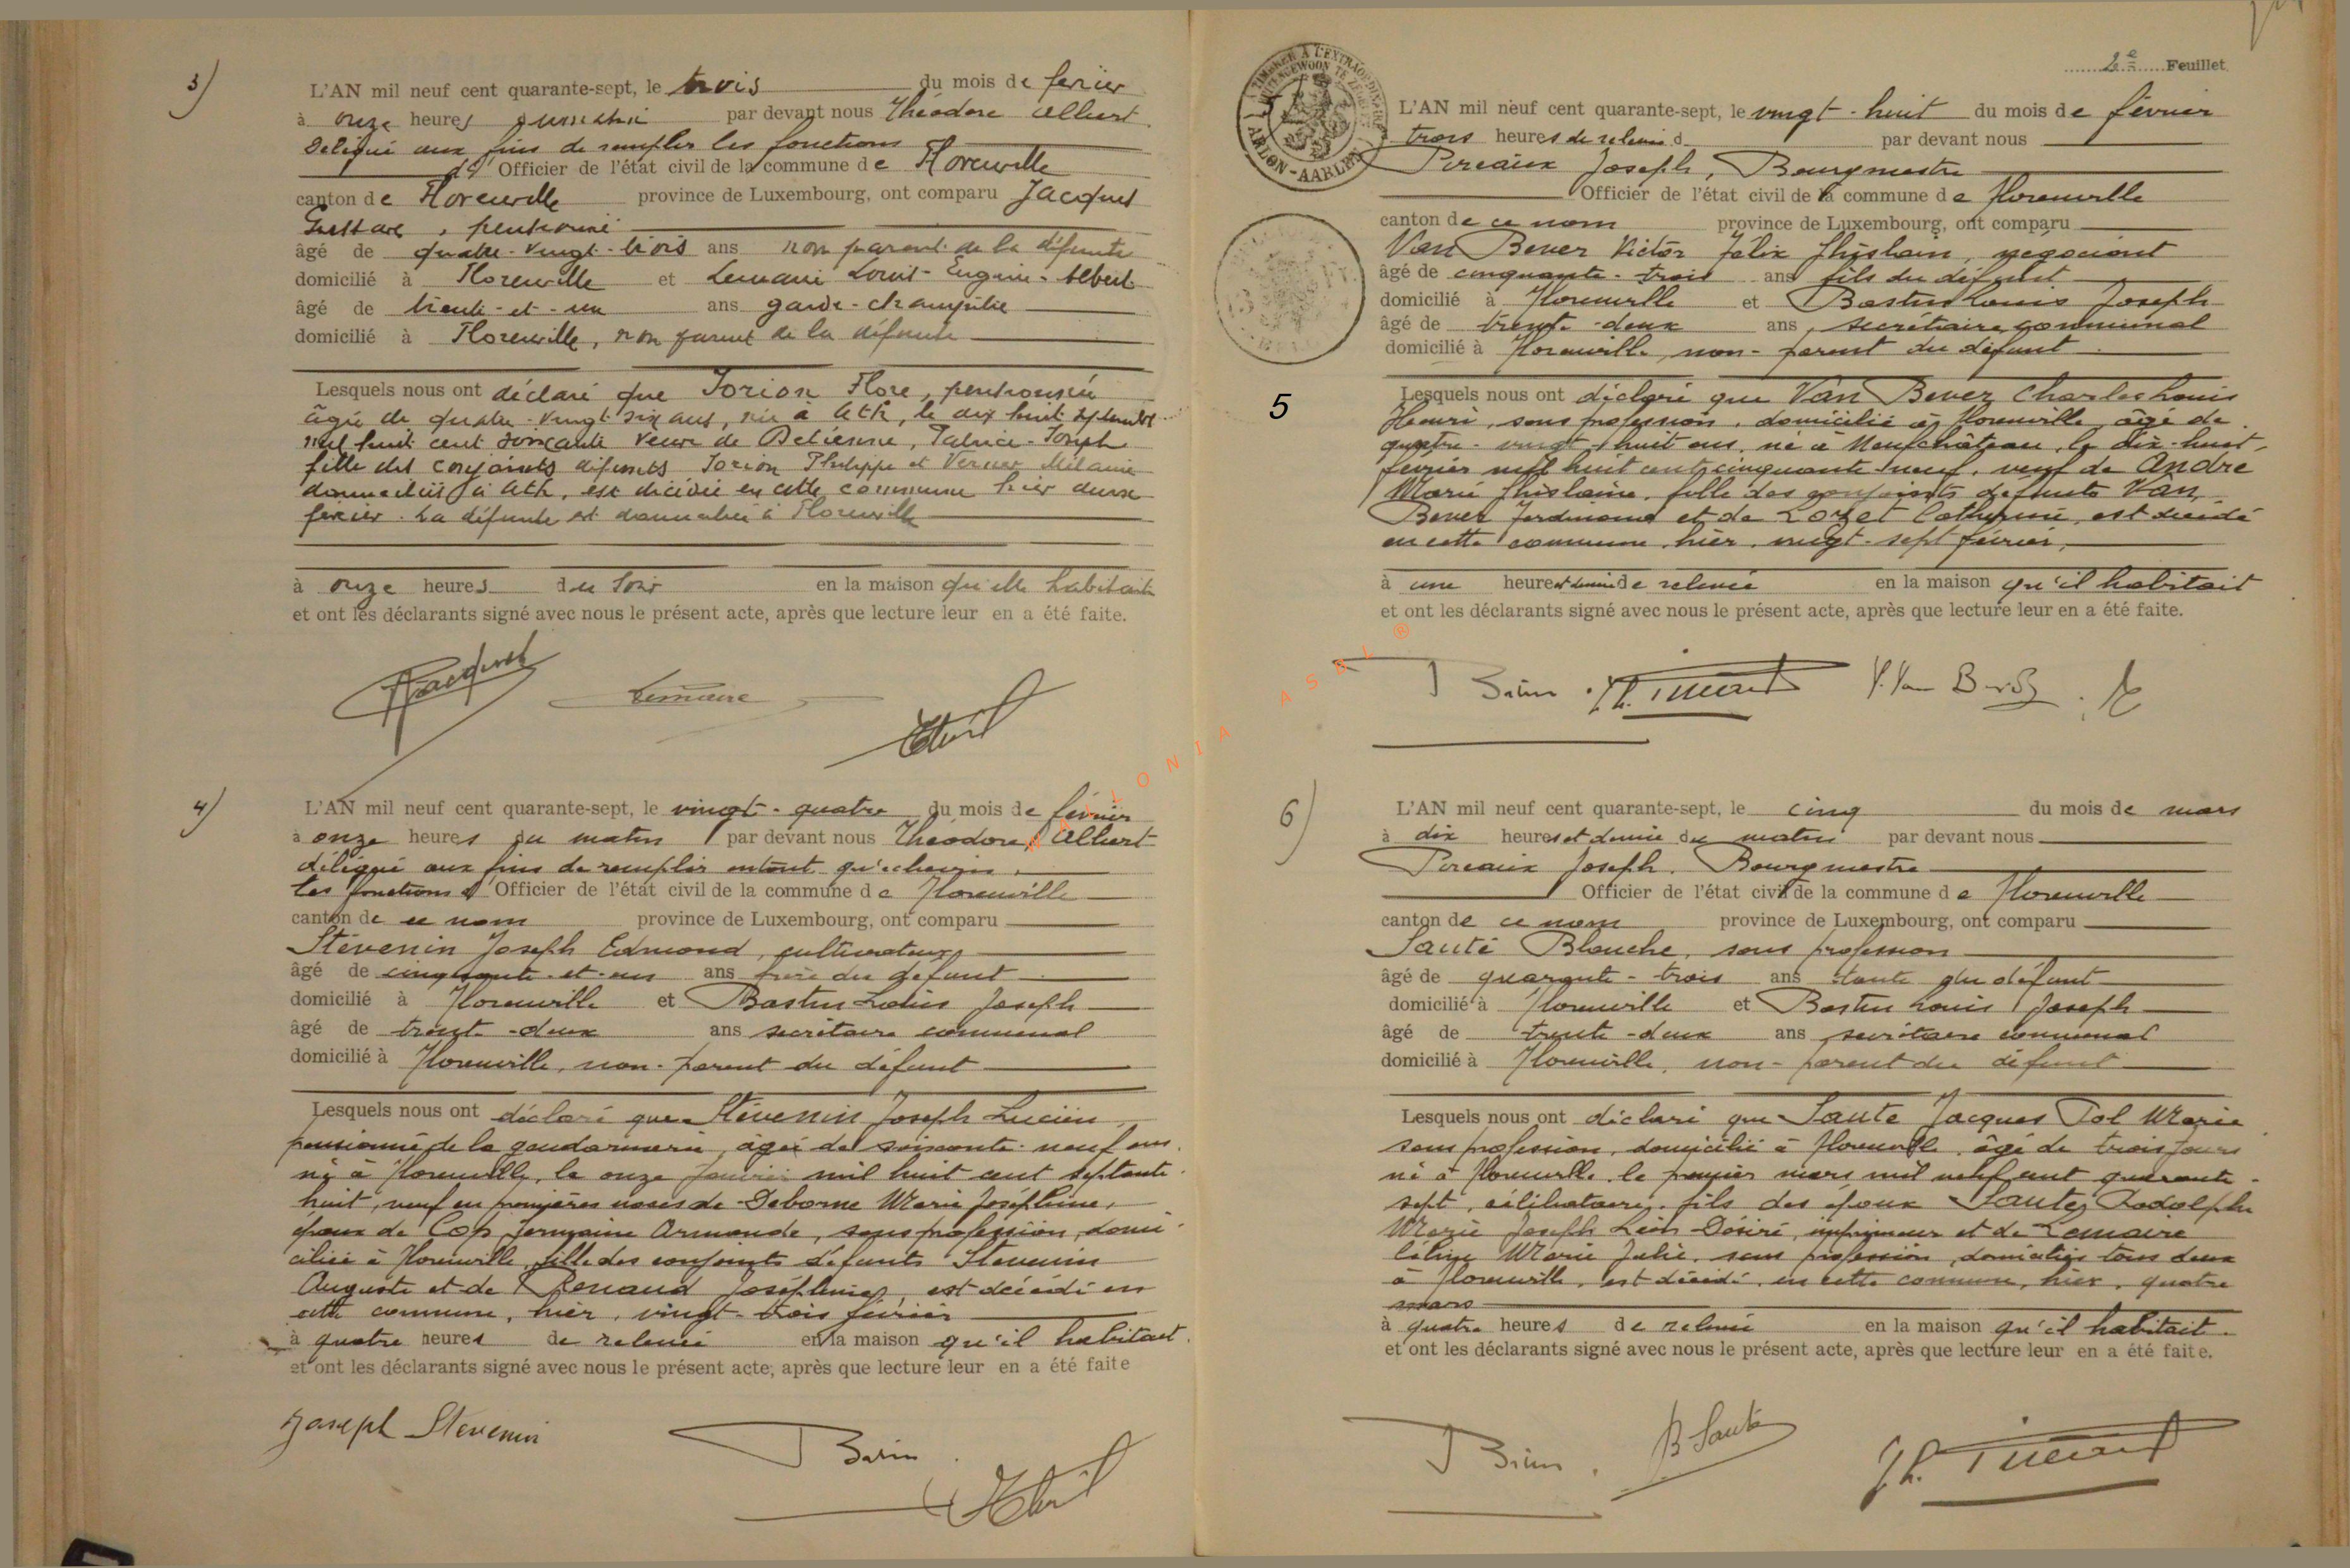 3)
L'AN mil neuf cent quarante-sept, le trois du mois de février
à onze heures du matin par devant nous Théodore Albert
délégué aux fins de remplir les fonctions
d'Officier de l'état civil de la commune de Florenville
canton de Florenville province de Luxembourg, ont comparu Jacques
Gustave, pensionné
âgé de quatre-vingt-trois ans non parent de la défunte
domicilié à Florenville et Lemaire Louis-Eugène-Albert
âgé de trente-et-un ans garde-champêtre
domicilié à Florenville, non parent de la défunte
Lesquels nous ont déclaré que Jorion Flore, pensionnée
âgée de quatre-vingt six ans, née à Ath, le dix huit septembre
mil huit cent soixante veuve de Delienne, Patrice-Joseph
fille des conjoints défunts Jorion Philippe et Verner Mélanie
domiciliés à Ath, est décédée en cette commune hier deux
février. La défunte est domiciliée à Florenville
à onze heures du soir en la maison qu'elle habitait
et ont les déclarants signé avec nous le présent acte, après que lecture leur en a été faite.
Jacques Lemaire
4)
L'AN mil neuf cent quarante-sept, le vingt-quatre du mois de février
à onze heures du matin par devant nous Théodore Albert
délégué aux fins de remplir entant qu'echevin
les fonctions d'Officier de l'état civil de la commune de Florenville
canton de ce nom province de Luxembourg, ont comparu
Stévenin Joseph Edmond, cultivateur
âgé de cinquante-et-un ans frère du défunt
domicilié à Florenville et Bastin Louis Joseph
âgé de trente-deux ans secrétaire communal
domicilié à Florenville, non-parent du défunt
Lesquels nous ont déclaré que Stévenin Joseph Lucien
pensionné de la gendarmerie, âgé de soixante-neuf ans
né à Florenville, le onze janvier mil huit cent septante
huit, veuf en premières noces de Deborne Marie Joséphine,
époux de Cop Germaine Armande, sans profession, domi
ciliée à Florenville, fille des conjoints défunts Stevenin
Auguste et de Renaud Joséphine, est décédé en
cette commune, hier, vingt-trois février
à quatre heures de relevée en la maison qu'il habitait.
et ont les déclarants signé avec nous le présent acte, après que lecture leur en a été faite
Joseph Stevenin
2e Feuillet
TIMBRER A L'EXTRAORDINAIRE
ARLON-AARLEN
5
L'AN mil neuf cent quarante-sept, le vingt-huit du mois de février
à trois heures de relevée par devant nous
Pireaux Joseph, Bourgmestre
Officier de l'état civil de la commune de Florenville
canton de ce nom province de Luxembourg, ont comparu
Van Bever Victor Félix Ghislain, négociant
âgé de cinquante-trois ans fils du défunt
domicilié à Florenville et Bastin Louis Joseph
âgé de trente-deux ans, secrétaire communal
domicilié à Florenville, non-parent du défunt
Lesquels nous ont déclaré que Van Bever Charles Louis
Henri, sans profession, domicilié à Florenville, âgé de
quatre-vingt-huit ans, né à Neufchâteau, le dix-huit
février mil huit cent cinquante neuf, veuf de André
Marie Ghislaine, fille des conjoints défunts Van
Bever Ferdinand et de Lozet Catherine, est décédé
en cette commune, hier, vingt-sept février,
à une heure et demie de relevée en la maison qu'il habitait
et ont les déclarants signé avec nous le présent acte, après que lecture leur en a été faite.
V. Van Bever
WALLONIA ASBL ®
6)
L'AN mil neuf cent quarante-sept, le cinq du mois de mars
à dix heures et demie du matin par devant nous
Pireaux Joseph, Bourgmestre
Officier de l'état civil de la commune de Florenville
canton de ce nom province de Luxembourg, ont comparu
Sauté Blanche, sans profession
âgé de quarante-trois ans tante du défunt
domicilié à Florenville et Bastin Louis Joseph
âgé de trente-deux ans secrétaire communal
domicilié à Florenville, non-parent du défunt
Lesquels nous ont déclaré que Sauté Jacques Pol Marie
sans profession, domicilié à Florenville, âgé de trois jours
né à Florenville, le premier mars mil neuf cent quarante-
sept, célibataire, fils des époux Sauté Rodolphe
Marie Joseph Léon Désiré, imprimeur et de Lemaire
Céline Marie Julie, sans profession, domiciliés tous deux
à Florenville, est décédé en cette commune, hier, quatre
mars
à quatre heures de relevée en la maison qu'il habitait.
et ont les déclarants signé avec nous le présent acte, après que lecture leur en a été faite.
B Sauté